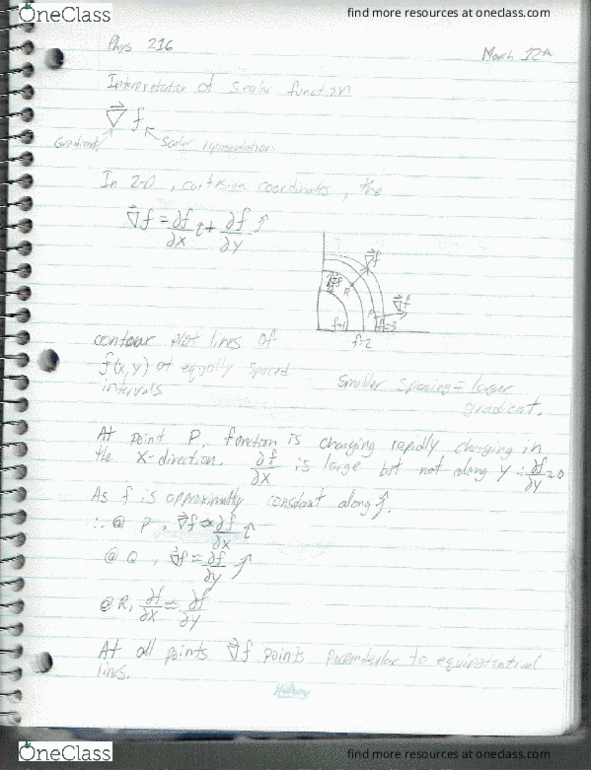 OneClass
find more resources at oneclass.com
Phys 216
March 12th
Interpretation of scalar function
∇⃗ f
Gradient
Scalar representation
In 2-D, cartesian coordinates, the
∇⃗f = ∂f/∂x î + ∂f/∂y ĵ
∇⃗f
R
P
∇⃗f
f=1
f=2
f=3
contour plot lines of
f(x,y) at equally spaced
intervals
smaller spacing = larger
gradient.
At point P, function is changing rapidly changing in
the X-direction. ∂f/∂x is large but not along y ∴ ∂f/∂y=0
As f is approximatly constant along ĵ.
∴ @ P, ∇⃗f ≈ ∂f/∂x î
@ Q, ∇⃗f ≈ ∂f/∂y ĵ
@ R, ∂f/∂x ≈ ∂f/∂y
At all points ∇⃗f points perpendicular to equipotential
lines.
Hilroy
OneClass
find more resources at oneclass.com